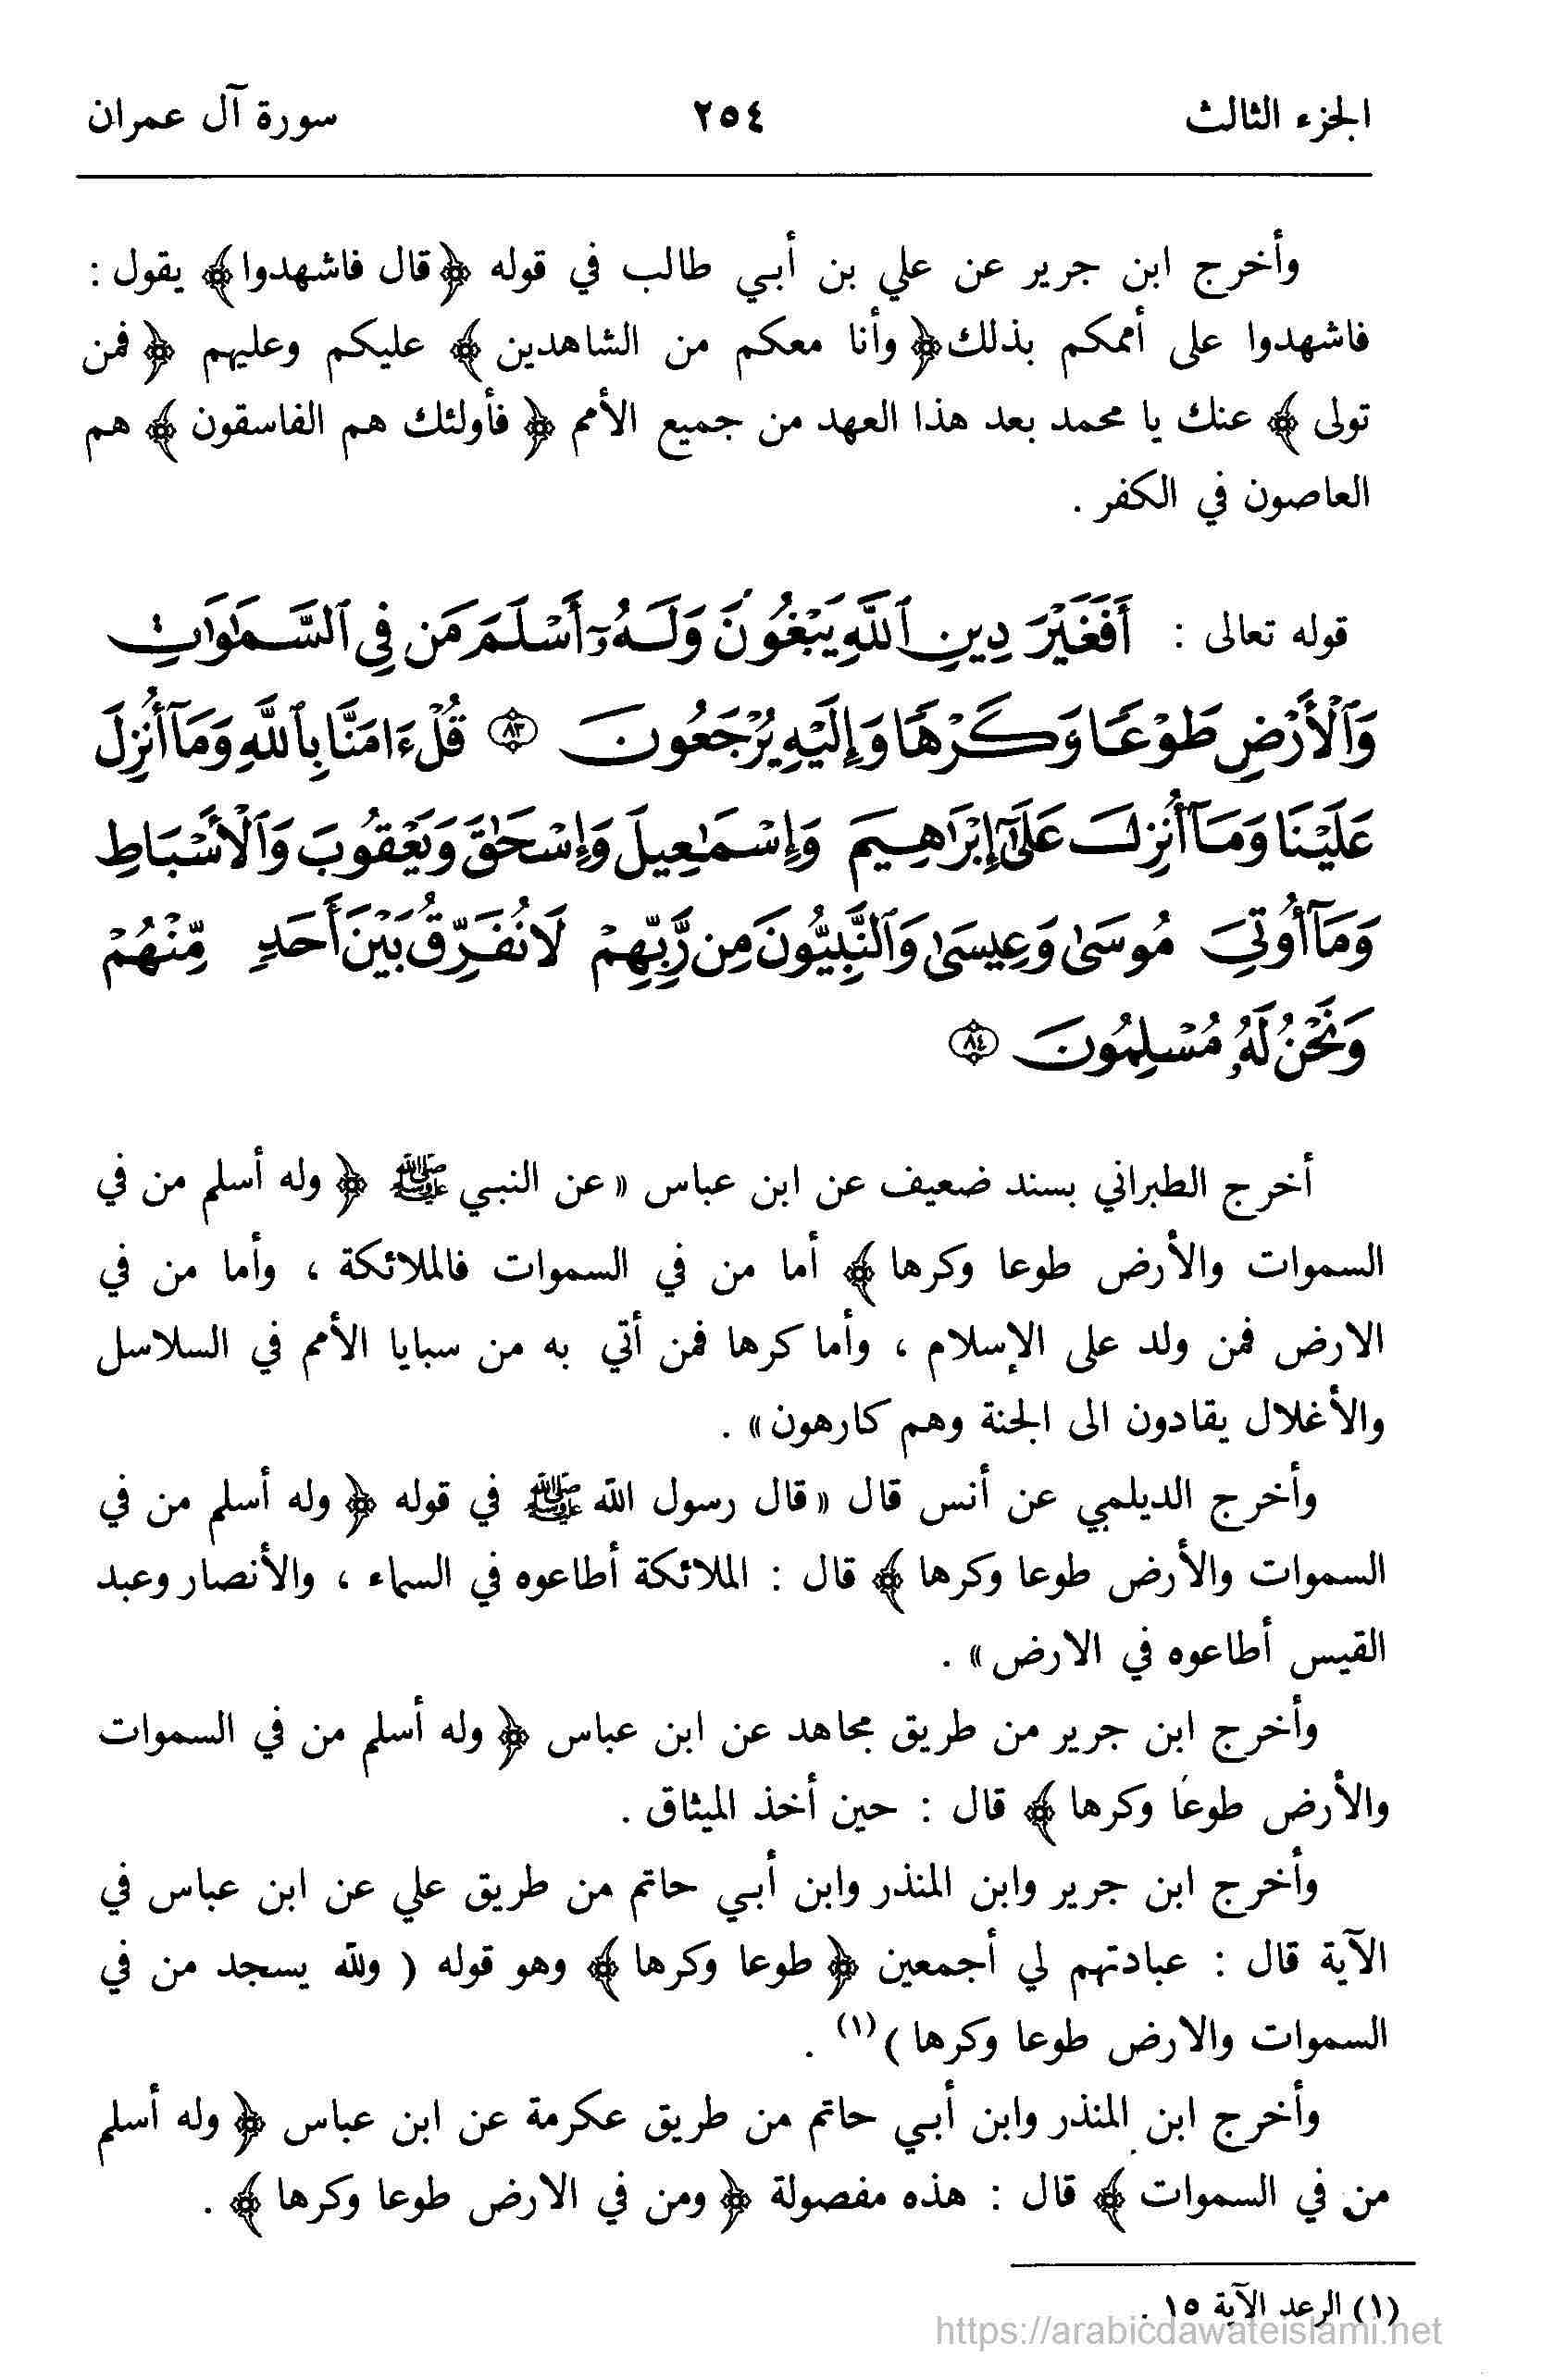 الجزء الثالث ٢٥٤ سورة آل عمران
وأخرج ابن جرير عن علي بن أبـي طالب في قوله ﴿قال فاشهدوا﴾ يقول :
فاشهدوا على أممكم بذلك﴿ وأنا معكم من الشاهدين ﴾ عليكم وعليهم ﴿ فمن
تولى ﴾ عنك يا محمد بعد هذا العهد من جميع الأمم ﴿ فأولئك هم الفاسقون ﴾ هم
العاصون في الكفر .
قوله تعالى : أَفَغَيْرَ دِينِ ٱللَّهِ يَبْغُونَ وَلَهُۥٓ أَسْلَمَ مَن فِي ٱلسَّمَٰوَٰتِ
وَٱلْأَرْضِ طَوْعًا وَكَرْهًا وَإِلَيْهِ يُرْجَعُونَ ٨٣ قُلْ ءَامَنَّا بِٱللَّهِ وَمَآ أُنزِلَ
عَلَيْنَا وَمَآ أُنزِلَ عَلَىٰٓ إِبْرَٰهِيمَ وَإِسْمَٰعِيلَ وَإِسْحَٰقَ وَيَعْقُوبَ وَٱلْأَسْبَاطِ
وَمَآ أُوتِيَ مُوسَىٰ وَعِيسَىٰ وَٱلنَّبِيُّونَ مِن رَّبِّهِمْ لَا نُفَرِّقُ بَيْنَ أَحَدٍ مِّنْهُمْ
وَنَحْنُ لَهُۥ مُسْلِمُونَ ٨٤
أخرج الطبراني بسند ضعيف عن ابن عباس « عن النبـي ﷺ ﴿ وله أسلم من في
السموات والأرض طوعا وكرها ﴾ أما من في السموات فالملائكة ، وأما من في
الارض فمن ولد على الإسلام ، وأما كرها فمن أتي به من سبايا الأمم في السلاسل
والأغلال يقادون الى الجنة وهم كارهون» .
وأخرج الديلمي عن أنس قال « قال رسول الله ﷺ في قوله ﴿ وله أسلم من في
السموات والأرض طوعا وكرها ﴾ قال : الملائكة أطاعوه في السماء ، والأنصار وعبد
القيس أطاعوه في الارض » .
وأخرج ابن جرير من طريق مجاهد عن ابن عباس ﴿ وله أسلم من في السموات
والأرض طوعا وكرها ﴾ قال : حين أخذ الميثاق .
وأخرج ابن جرير وابن المنذر وابن أبـي حاتم من طريق علي عن ابن عباس في
الآية قال : عبادتهم لي أجمعين ﴿ طوعا وكرها ﴾ وهو قوله ( ولله يسجد من في
السموات والارض طوعا وكرها )(١) .
وأخرج ابن المنذر وابن أبـي حاتم من طريق عكرمة عن ابن عباس ﴿ وله أسلم
من في السموات ﴾ قال : هذه مفصولة ﴿ ومن في الارض طوعا وكرها ﴾ .
(١) الرعد الآية ١٥ .
https://arabicdawateislami.net